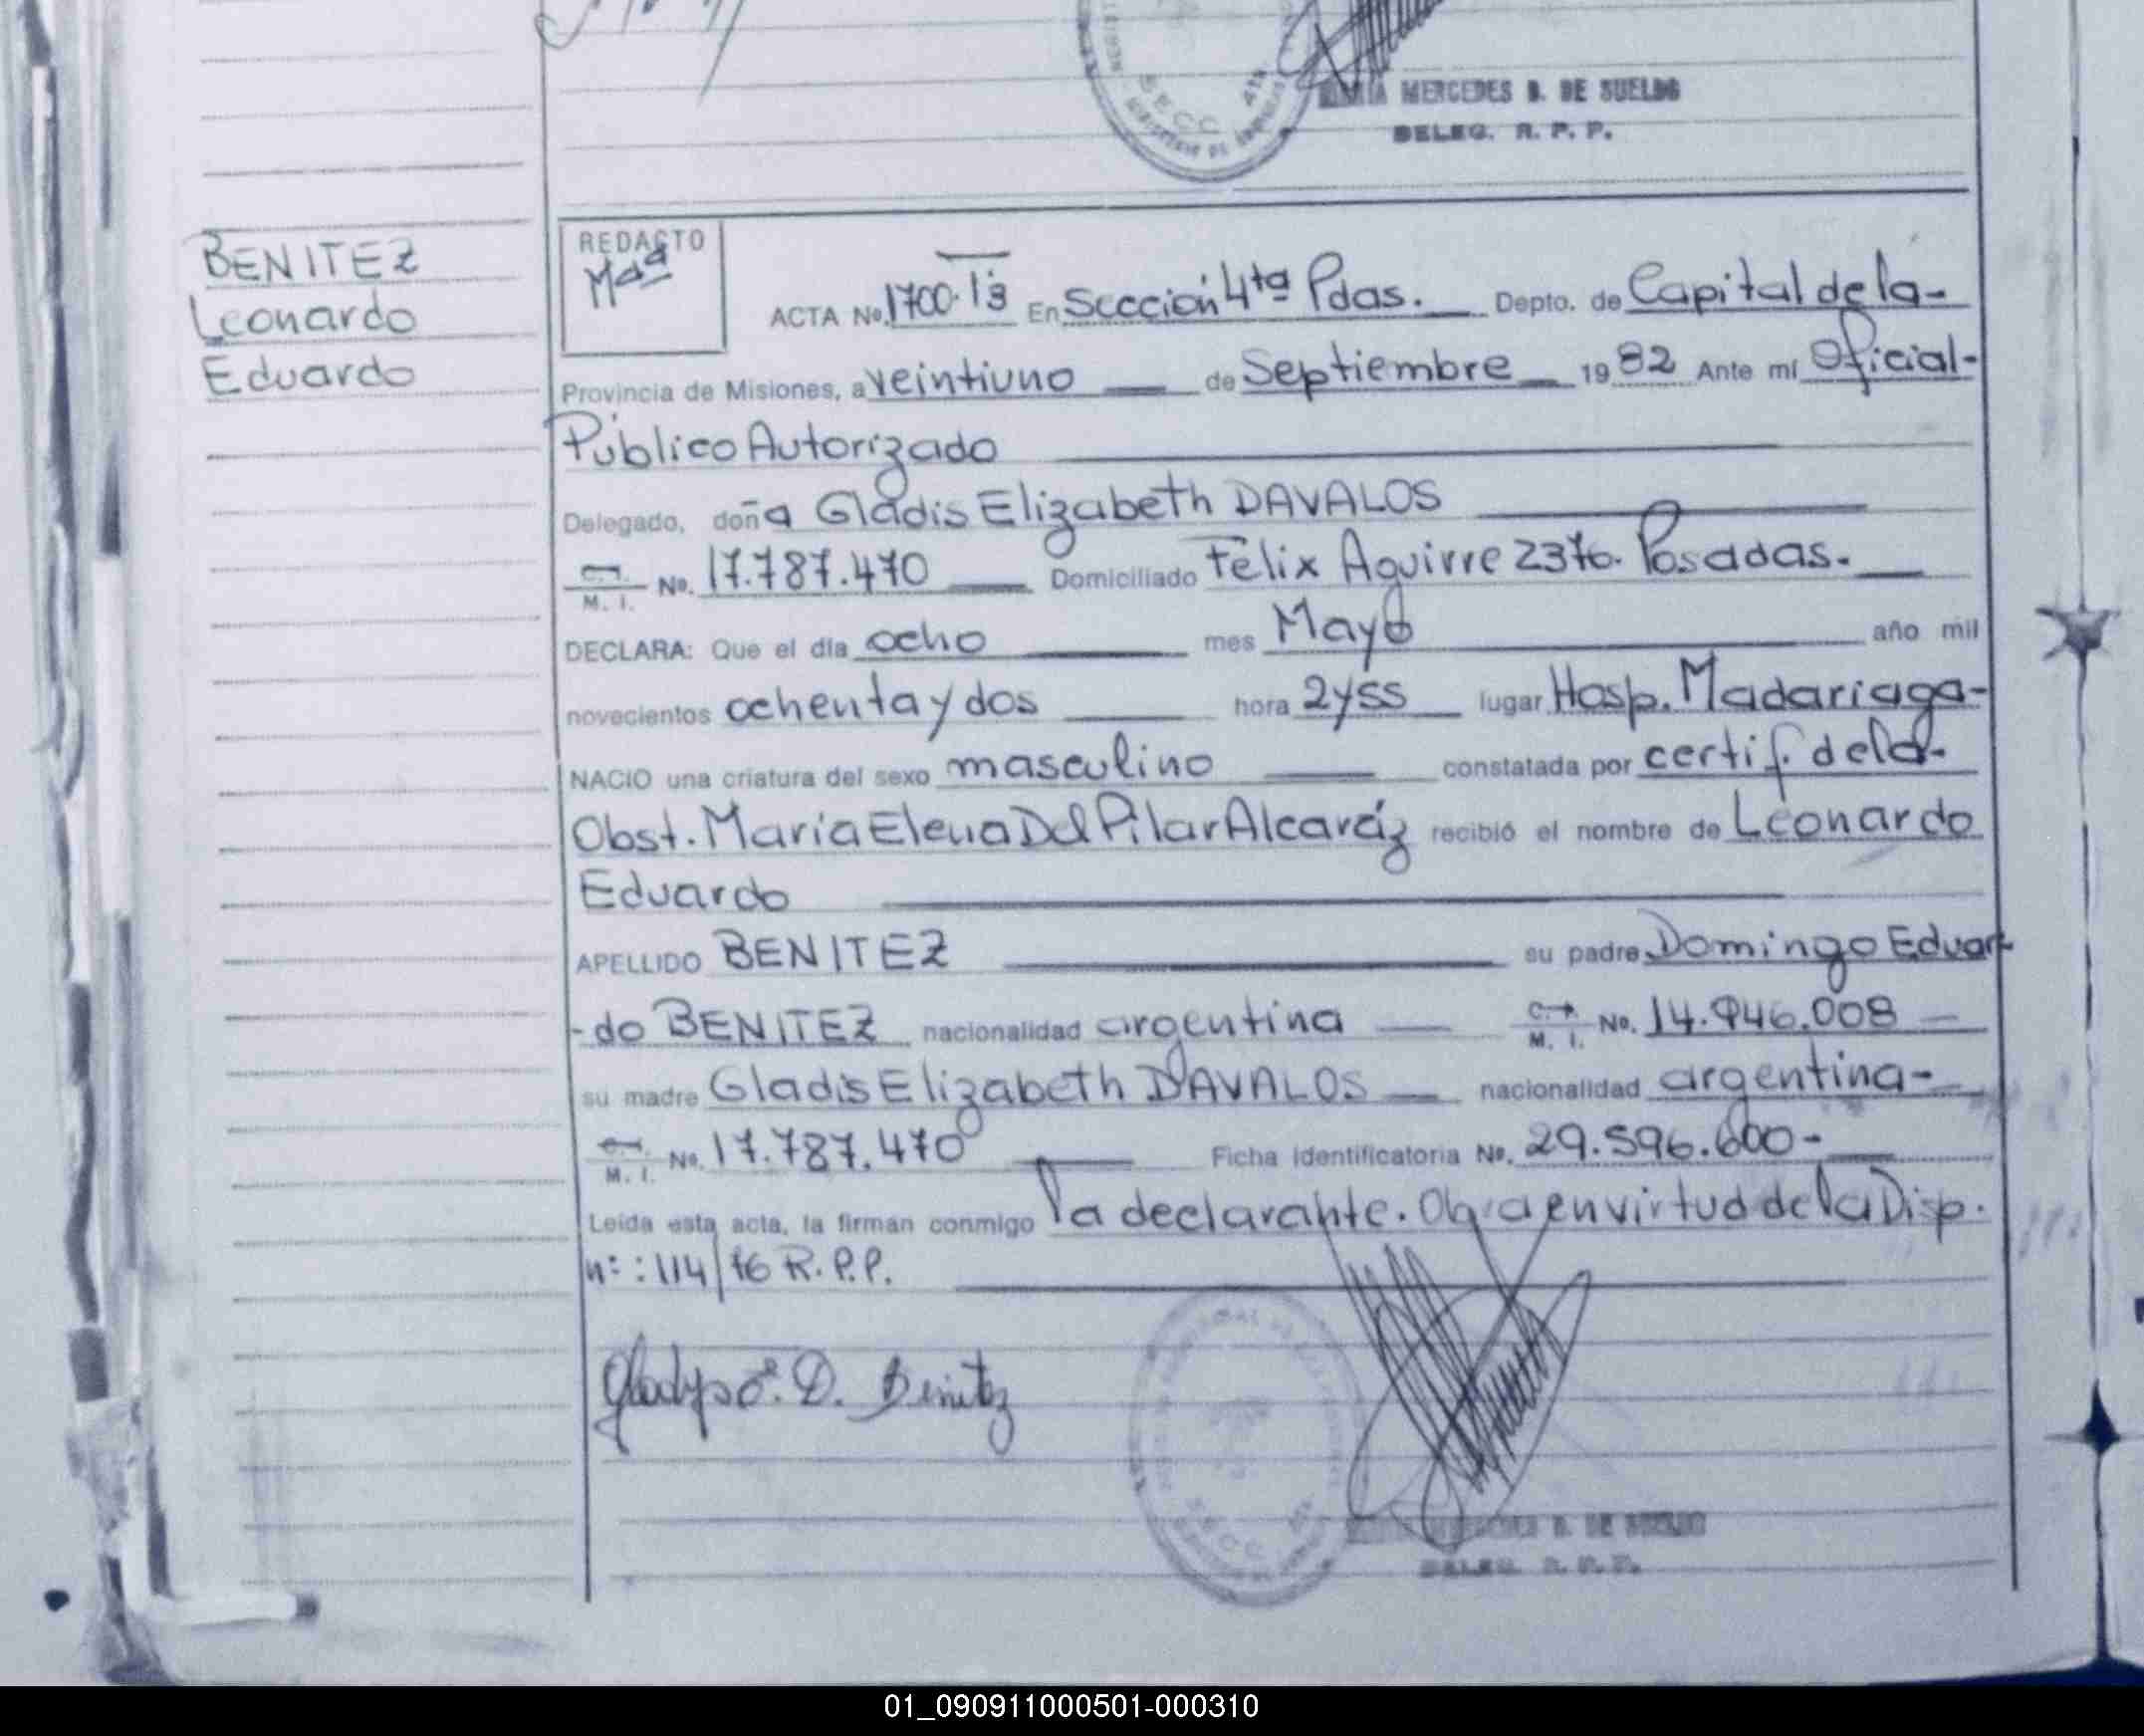 MERCEDES B. DE SUELDO
DELEG. R. P. P.
BENITEZ
Leonardo
Eduardo
REDACTO
ACTA No. 1700. En Sección 4ta Pdas. Depto. de Capital de la-
Provincia de Misiones, a veintiuno de Septiembre 1982 Ante mí Oficial-
Público Autorizado
Delegado, doña Gladis Elizabeth DAVALOS
M. I. No. 17.787.470 Domiciliado Félix Aguirre 2376. Posadas.
DECLARA: Que el día ocho mes Mayo año mil
novecientos ochenta y dos hora 2y55 lugar Hosp. Madariaga-
NACIO una criatura del sexo masculino constatada por certif. de la-
Obst. María Elena Del Pilar Alcaráz recibió el nombre de Leonardo
Eduardo
APELLIDO BENITEZ su padre Domingo Eduar
-do BENITEZ nacionalidad argentina M. I. No. 14.946.008
su madre Gladis Elizabeth DAVALOS nacionalidad argentina-
M. I. No. 17.787.470 Ficha identificatoria No. 29.596.600-
Leída esta acta, la firman conmigo la declarante. Obra en virtud de la Disp.
n=: 114/76 R.P.P.
Gladys E. D. Benitez
B. DE SUELDO
DELEG. R. P. P.
01_090911000501-000310